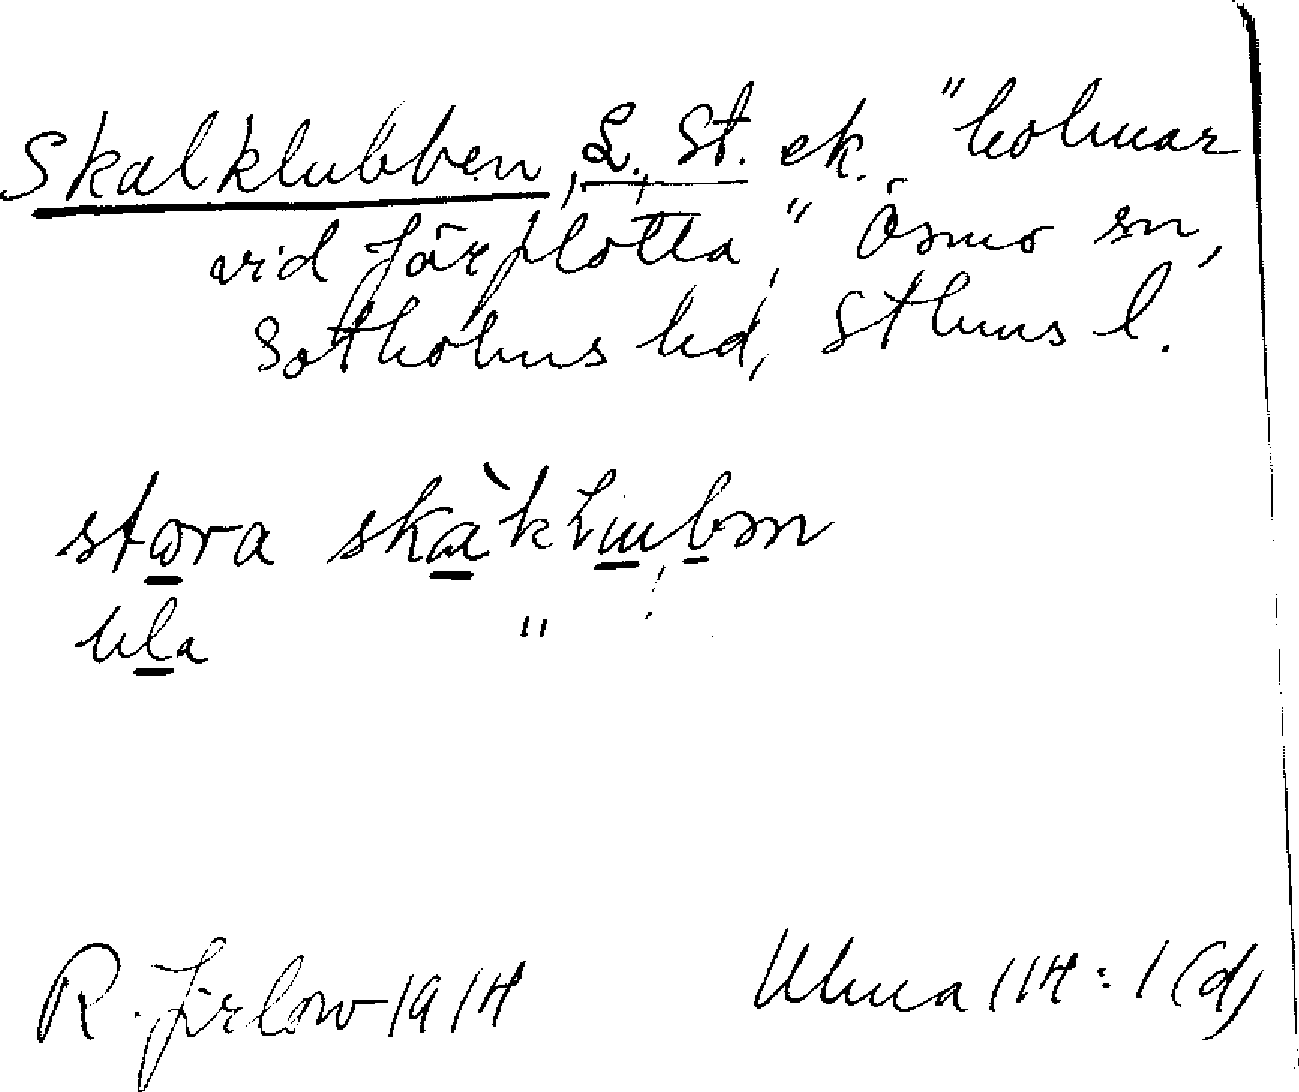 Skalklubben, L., St. ek. "holmar
vid Järflotta", Ösmo sn,
Sotholms hd, Sthms l.
stora skàklubən
lila "
R. Jirlow 1914
Ulma 114:1(d)